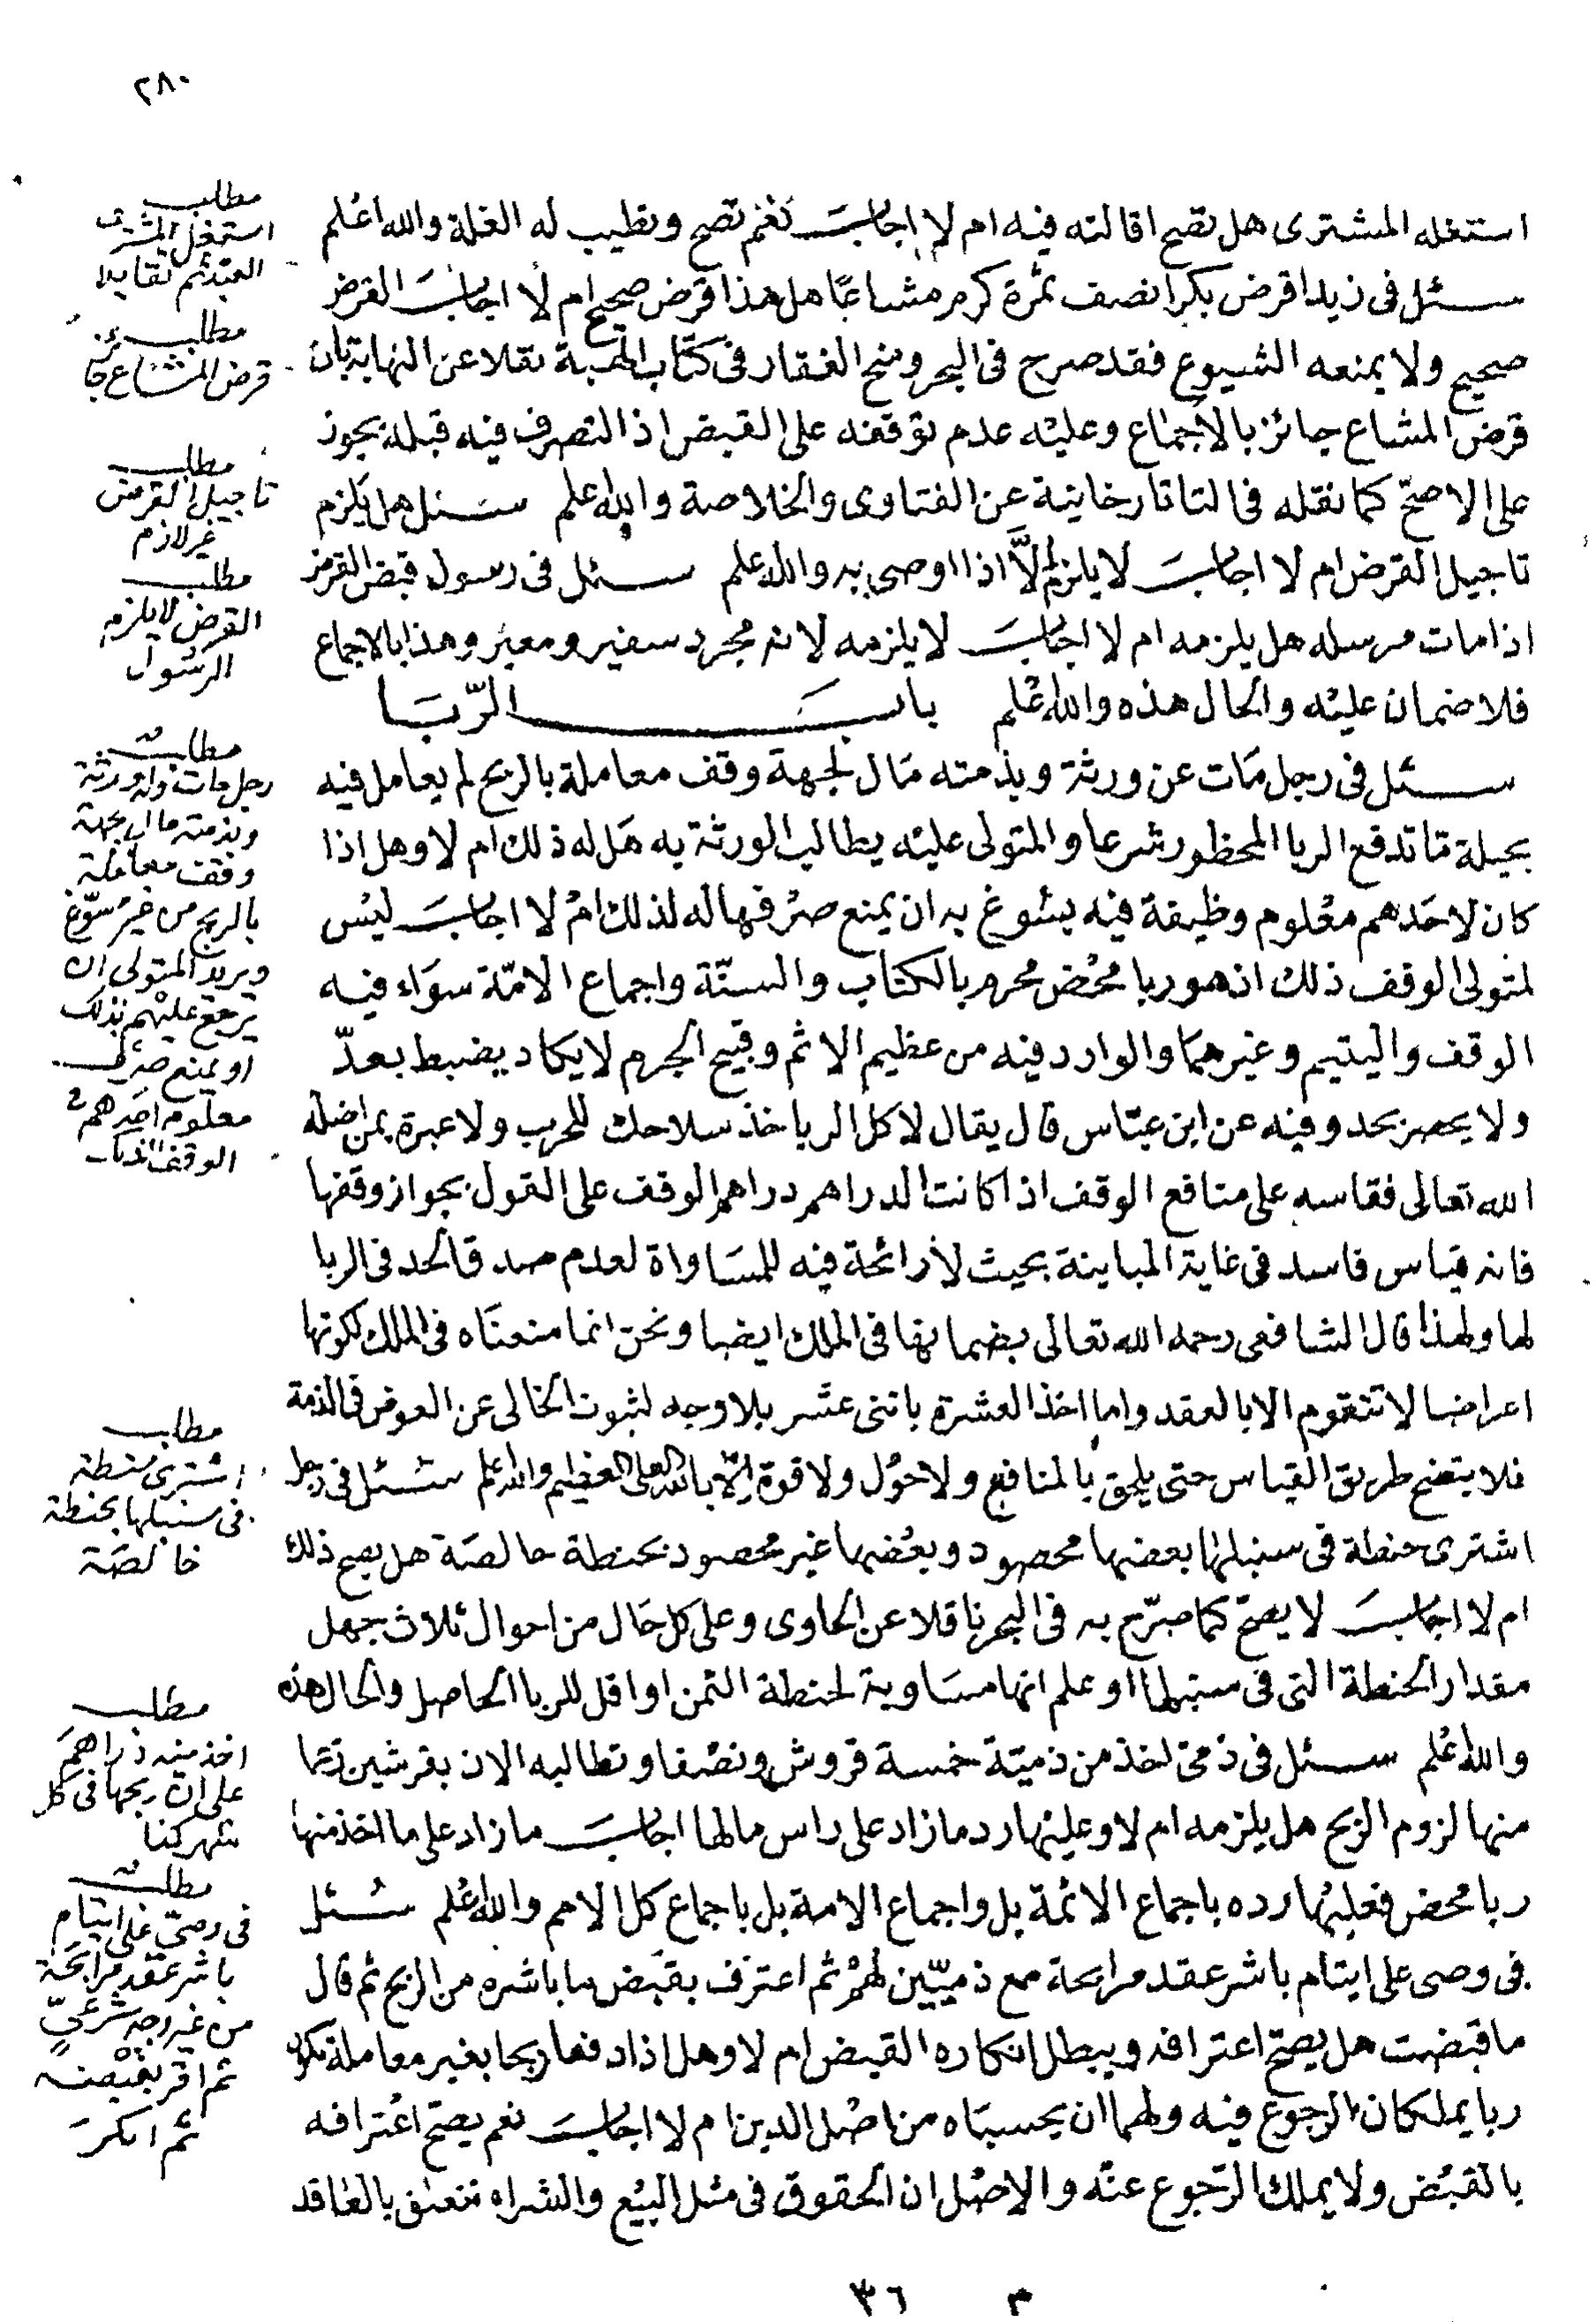 ٢٨٠
استغله المشترى هل تصح اقالته فيه ام لا اجاب نعم تصح وتطيب له الغلة والله اعلم
سئل فى زيد اقرض بكرا نصف ثمرة كرم مشاعا هل هذا قرض صحيح ام لا اجاب القرض
صحيح ولا يمنعه الشيوع فقد صرح فى البحر ومنح الغفار فى كتاب الهبة نقلا عن النهاية بان
قرض المشاع جائز بالاجماع وعليه عدم توقفه على القبض اذ التصرف فيه قبله يجوز
على الاصح كما نقله فى التاتارخانية عن الفتاوى والخلاصة والله اعلم سئل هل يلزم
تاجيل القرض ام لا اجاب لا يلزم الا اذا اوصى به والله اعلم سئل فى رسول قبض القرض
اذا مات مرسله هل يلزمه ام لا اجاب لا يلزمه لانه مجرد سفير ومعبر وهذا بالاجماع
فلا ضمان عليه والحال هذه والله اعلم باب الربا
سئل فى رجل مات عن ورثة وبذمته مال لجهة وقف معاملة بالربح لم يعامل فيه
بحيلة ما تدفع الربا المحظور شرعا والمتولى عليه يطالب الورثة به هل له ذلك ام لا وهل اذا
كان لاحدهم معلوم وظيفة فيه يسوغ به ان يمنع صرفها له لذلك ام لا اجاب ليس
لمتولى الوقف ذلك اذ هو ربا محض محرم بالكتاب والسنة واجماع الامة سواء فيه
الوقف واليتيم وغيرهما والوارد فيه من عظيم الاثم وقبيح الجرم لا يكاد يضبط بعدّ
ولا يحصر بحد وفيه عن ابن عباس قال يقال لاكل الربا خذ سلاحك للحرب ولا عبرة بمن اضله
الله تعالى فقاسه على منافع الوقف اذا كانت الدراهم دراهم الوقف على القول بجواز وقفها
فانه قياس فاسد فى غاية المباينة بحيث لا رائحة فيه للمساواة لعدم صدق الحد فى الربا
لها ولهذا قال الشافعى رحمه الله تعالى بضمانها فى الملك ايضا ونحن انما منعناه فى الملك لكونها
اعراضا لا تتقوم الا بالعقد واما اخذ العشرة باثنى عشر بلا وجه لثبوت الخالى عن العوض فى الذمة
فلا يتضح طريق القياس حتى يلحق بالمنافع ولا حول ولا قوة الا بالله العلى العظيم والله اعلم سئل فى رجل
اشترى حنطة فى سنبلها بعضها محصود وبعضها غير محصود بحنطة خالصة هل يصح ذلك
ام لا اجاب لا يصح كما صرح به فى البحر ناقلا عن الحاوى وعلى كل حال من احوال ثلاث جهل
مقدار الحنطة التى فى سنبلها او علم انها مساوية لحنطة الثمن او اقل للربا الحاصل والحال هذه
والله اعلم سئل فى ذمى اخذ من ذمية خمسة قروش ونصفا وتطالبه الان بقرشين زعما
منها لزوم الربح هل يلزمه ام لا وعليها رد ما زاد على راس مالها اجاب ما زاد على ما اخذ منها
ربا محض فعليها رده باجماع الائمة بل واجماع الامة بل باجماع كل الامم والله اعلم سئل
فى وصى على ايتام باشر عقد مرابحة مع ذميين لهم ثم اعترف بقبض ما باشره من الربح ثم قال
ما قبضت هل يصح اعترافه ويبطل انكاره القبض ام لا وهل اذا دفعا ربحا بغير معاملة تكون
ربا يملكان الرجوع فيه ولهما ان يحسباه من اصل الدين ام لا اجاب نعم يصح اعترافه
بالقبض ولا يملك الرجوع عنه والاصل ان الحقوق فى مثل البيع والشراء تتعلق بالعاقد
مطلب
استغل المشترى
العبد ثم تقايلا
مطلب
قرض المشاع جائز
مطلب
تاجيل القرض
غير لازم
مطلب
القرض لا يلزم
الرسول
مطلب
رجل مات وله ورثة
وبذمته مال لجهة
وقف معاملة
بالربح من غير مسوّغ
ويريد المتولى ان
يرجع عليهم بذلك
او يمنع صرف
معلوم احدهم فى
الوقف
مطلب
اشترى حنطة
فى سنبلها بحنطة
خالصة
مطلب
اخذ منه دراهم
على ان ربحها فى كل
شهر كذا
مطلب
فى وصى على ايتام
باشر عقد مرابحة
من غير وجه شرعىّ
ثم اقر بقبضه
ثم انكر
م ٣٦